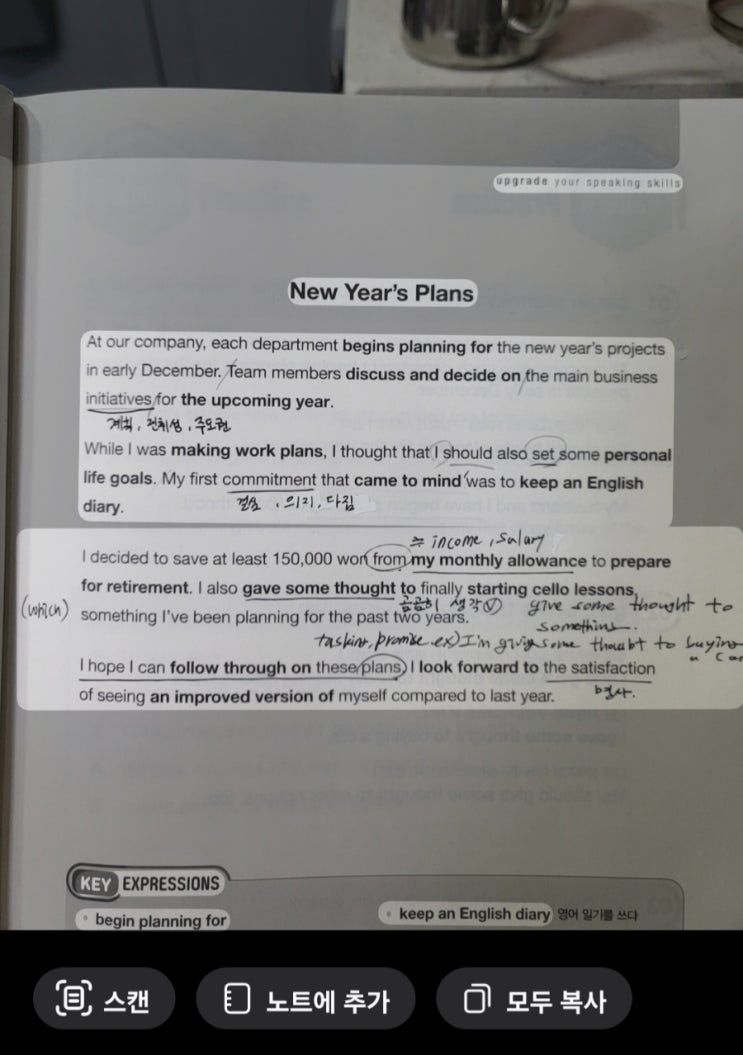 upgrade your speaking skills
New Year's Plans
At our company, each department begins planning for the new year's projects
in early December. Team members discuss and decide on the main business
initiatives for the upcoming year.
계획, 진취성, 주도권
While I was making work plans, I thought that I should also set some personal
life goals. My first commitment that came to mind was to keep an English
diary.
결심, 의지, 다짐
≒ income, salary
I decided to save at least 150,000 won from my monthly allowance to prepare
for retirement. I also gave some thought to finally starting cello lessons,
곰곰히 생각 give some thought to
(which) something I've been planning for the past two years.
something.
promise ex) I'm giving some thought to buying
a car
I hope I can follow through on these plans. I look forward to the satisfaction
명사.
of seeing an improved version of myself compared to last year.
KEY EXPRESSIONS
begin planning for
keep an English diary 영어 일기를 쓰다
스캔
노트에 추가
모두 복사